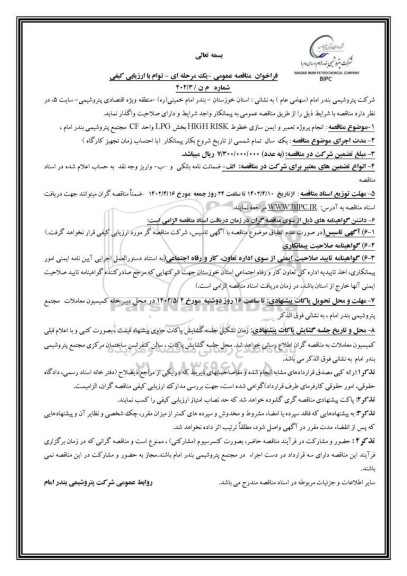 بسمه تعالی
شرکت پتروشیمی بندر امام (سهامی عام)
BANDAR IMAM PETROCHEMICAL COMPANY
BIPC
فراخوان مناقصه عمومی -یک مرحله ای - توام با ارزیابی کیفی
شماره م ن / ۴۰۲/۳
شرکت پتروشیمی بندر امام (سهامی عام ) به نشانی : استان خوزستان - بندر امام خمینی(ره) -منطقه ویژه اقتصادی پتروشیمی- سایت ۵، در
نظر دارد مناقصه با شرایط ذیل را از طریق مناقصه عمومی به پیمانکار واجد شرایط و دارای صلاحیت واگذار نماید.
۱-موضوع مناقصه : انجام پروژه تعمیر و ایمن سازی خطوط HIGH RISK بخش LPG واحد CF مجتمع پتروشیمی بندر امام ،
۲- مدت اجرای موضوع مناقصه : یک سال تمام شمسی از تاریخ شروع بکار پیمانکار (با احتساب زمان تجهیز کارگاه )
۳- مبلغ تضمین شرکت در مناقصه: (به عدد) ۷/۳۰۰/۰۰۰/۰۰۰ ریال میباشد.
۴- انواع تضمین های معتبر برای شرکت در مناقصه: الف- ضمانت نامه بانکی و -ب- واریز وجه نقد به حساب اعلام شده در اسناد
مناقصه
۵- مهلت توزیع اسناد مناقصه : ازتاریخ ۱۴۰۲/۴/۱۰ تا ساعت ۲۴ روز جمعه مورخ ۱۴۰۲/۴/۱۶ -ضمناً مناقصه گران میتوانند جهت دریافت
اسناد مناقصه به آدرس: WWW.BIPC.IR مراجعه نمایند.
۶- داشتن گواهینامه های ذیل از سوی مناقصه گران در زمان دریافت اسناد مناقصه الزامی است:
۶-۱) آگهی تاسیس(در صورت عدم تطابق موضوع مناقصه با آگهی تاسیس، شرکت مناقصه گر مورد ارزیابی کیفی قرار نخواهد گرفت.)
۶-۲) گواهینامه صلاحیت پیمانکاری
۶-۳) گواهینامه تایید صلاحیت ایمنی از سوی اداره تعاون، کار و رفاه اجتماعی(به استناد دستورالعمل اجرایی آیین نامه ایمنی امور
پیمانکاری، اخذ تاییدیه اداره کل تعاون کار و رفاه اجتماعی استان خوزستان جهت شرکتهایی که مرجع صادرکننده گواهینامه تایید صلاحیت
ایمنی آنها خارج از استان باشد، در زمان دریافت اسناد مناقصه الزامی است.)
۷- مهلت و محل تحویل پاکات پیشنهادی: تا ساعت ۱۶ روز دوشنبه مورخ ۱۴۰۲/۵/۲ در محل دبیرخانه کمیسیون معاملات مجتمع
پتروشیمی بندر امام ، به نشانی فوق الذکر
۸- محل و تاریخ جلسه گشایش پاکات پیشنهادی: زمان تشکیل جلسه گشایش پاکات حاوی پیشنهاد قیمت ، بصورت کتبی و با اعلام قبلی
کمیسیون معاملات به مناقصه گران اطلاع رسانی خواهد شد. محل جلسه گشایش پاکات ، سالن کنفرانس ساختمان مرکزی مجتمع پتروشیمی
بندر امام به نشانی فوق الذکر می باشد.
تذکر۱: ارائه کپی مصدق قراردادهای مشابه انجام شده و مفاصاحسابهای ذیربط که رونیکی از مراجع ذیصلاح (دفتر خانه اسناد رسمی، دادگاه
حقوقی، امور حقوقی کارفرمای طرف قرارداد)گواهی شده است، جهت بررسی مدارک ارزیابی کیفی مناقصه گران، الزامیست.
تذکر۲: پاکت پیشنهادی مناقصه گری گشوده خواهد شد که حد نصاب امتیاز ارزیابی کیفی را کسب نمایند.
تذکر۳: به پیشنهادهایی که فاقد سپرده یا امضاء مشروط و مخدوش و سپرده های کمتر از میزان مقرر، چک شخصی و نظایر آن و پیشنهادهایی
که پس از انقضاء مدت مقرر در آگهی واصل شود، مطلقاً ترتیب اثر داده نخواهد شد.
تذکر۴ : حضور و مشارکت در فرآیند مناقصه حاضر، بصورت کنسرسیوم (مشارکتی) ، ممنوع است و مناقصه گرانی که در زمان برگزاری
فرآیند این مناقصه دارای سه قرارداد در دست اجراء در مجتمع پتروشیمی بندر امام باشند.مجاز به حضور و مشارکت در این مناقصه نمی
باشند.
سایر اطلاعات و جزئیات مربوطه در اسناد مناقصه مندرج می باشد.
روابط عمومی شرکت پتروشیمی بندر امام